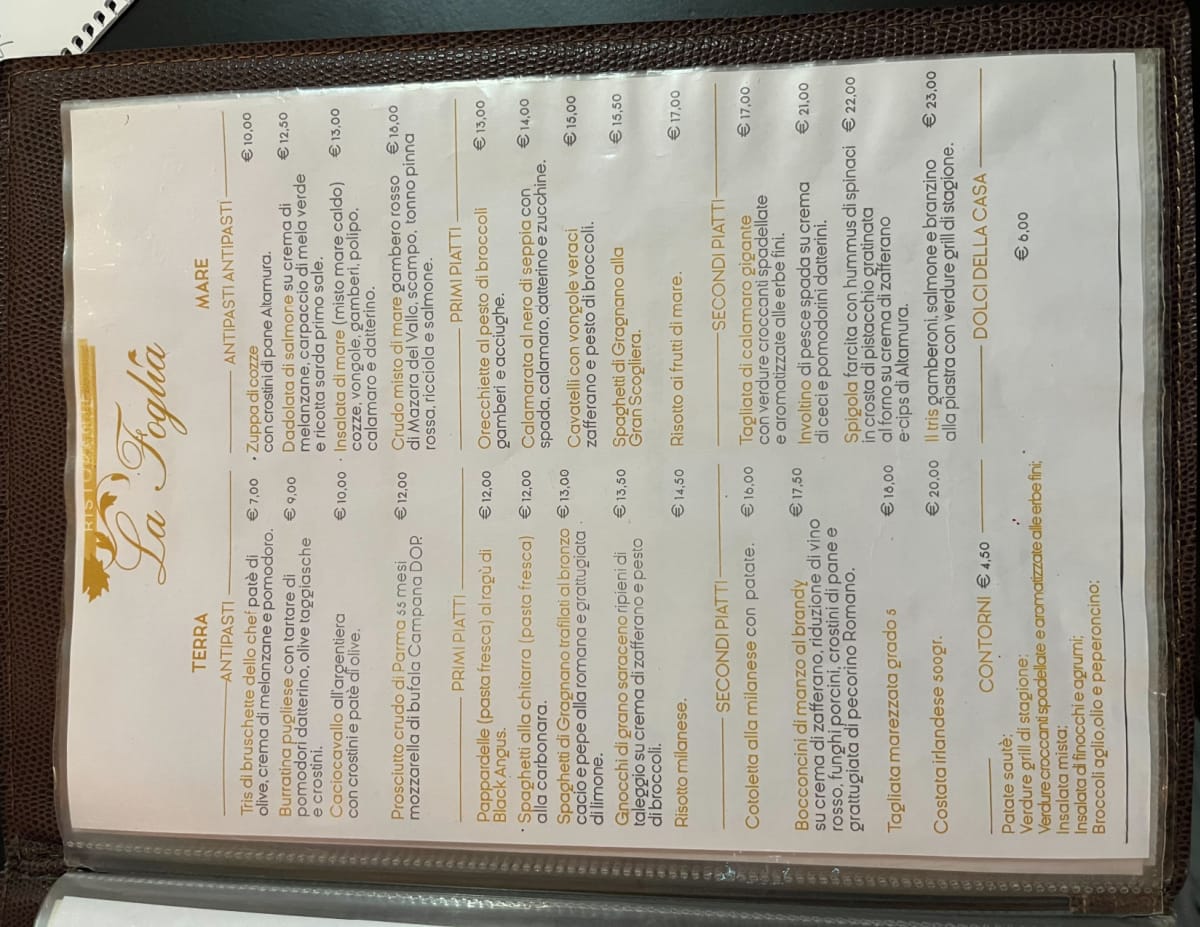 RISTORANTE
La Foglia
TERRA
ANTIPASTI
Tris di bruschette dello chef patè di € 7,00
olive, crema di melanzane e pomodoro.
Burratina pugliese con tartare di € 9,00
pomodori datterino, olive taggiasche
e crostini.
Caciocavallo all'argentiera € 10,00
con crostini e patè di olive.
Prosciutto crudo di Parma 33 mesi € 12,00
mozzarella di bufala Campana DOP.
PRIMI PIATTI
Pappardelle (pasta fresca) al ragù di € 12,00
Black Angus.
Spaghetti alla chitarra (pasta fresca) € 12,00
alla carbonara.
Spaghetti di Gragnano trafilati al bronzo € 13,00
cacio e pepe alla romana e grattugiata
di limone.
Gnocchi di grano saraceno ripieni di € 13,50
taleggio su crema di zafferano e pesto
di broccoli.
Risotto milanese. € 14,50
SECONDI PIATTI
Cotoletta alla milanese con patate. € 16,00
Bocconcini di manzo al brandy € 17,50
su crema di zafferano, riduzione di vino
rosso, funghi porcini, crostini di pane e
grattugiata di pecorino Romano.
Tagliata marezzata grado 5 € 18,00
Costata irlandese 500gr. € 20,00
CONTORNI € 4,50
Patate sautè;
Verdure grill di stagione;
Verdure croccanti spadellate e aromatizzate alle erbe fini;
Insalata mista;
Insalata di finocchi e agrumi;
Broccoli aglio, olio e peperoncino;
MARE
ANTIPASTI ANTIPASTI
Zuppa di cozze € 10,00
con crostini di pane Altamura.
Dadolata di salmone su crema di € 12,50
melanzane, carpaccio di mela verde
e ricotta sarda primo sale.
Insalata di mare (misto mare caldo) € 13,00
cozze, vongole, gamberi, polipo,
calamaro e datterino.
Crudo misto di mare gambero rosso € 18,00
di Mazara del Vallo, scampo, tonno pinna
rossa, ricciola e salmone.
PRIMI PIATTI
Orecchiette al pesto di broccoli € 13,00
gamberi e acciughe.
Calamarata al nero di seppia con € 14,00
spada, calamaro, datterino e zucchine.
Cavatelli con vongole veraci € 15,00
zafferano e pesto di broccoli.
Spaghetti di Gragnano alla € 15,50
Gran Scogliera.
Risotto ai frutti di mare. € 17,00
SECONDI PIATTI
Tagliata di calamaro gigante € 17,00
con verdure croccanti spadellate
e aromatizzate alle erbe fini.
Involtino di pesce spada su crema € 21,00
di ceci e pomodorini datterini.
Spigola farcita con hummus di spinaci € 22,00
in crosta di pistacchio gratinata
al forno su crema di zafferano
e cips di Altamura.
Il tris gamberoni, salmone e branzino € 23,00
alla piastra con verdure grill di stagione.
DOLCI DELLA CASA
€ 6,00